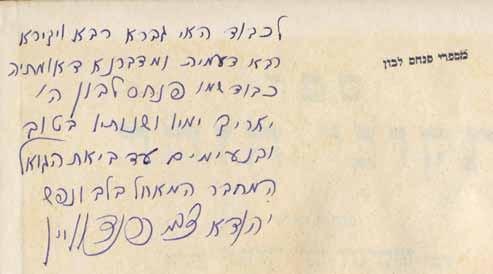 לכבוד האי גברא רבא ויקירא
מספרי פנחס לבון
רבא דעמיה ומדברנא דאומתיה
כבוד שמו פנחס לבון הי׳
יאריך ימיו ושנותיו בטוב
ובנעימים עד ביאת הגואל
המחבר המאחל בלב ונפש
יהודא צבי ברנדוויין